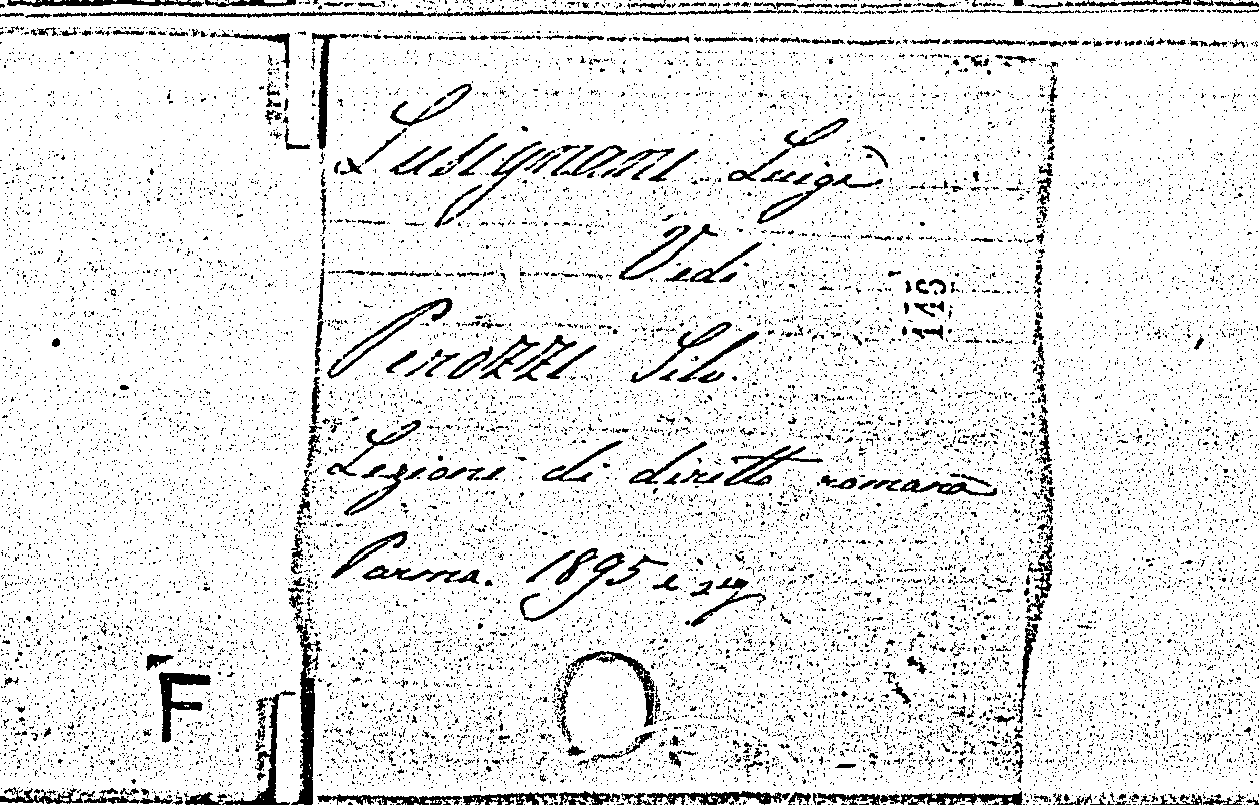 Lusignani Luigi
Vedi
Perozzi Silv.
Lezioni di diritto romano
Parma. 1895 e seg
146
F